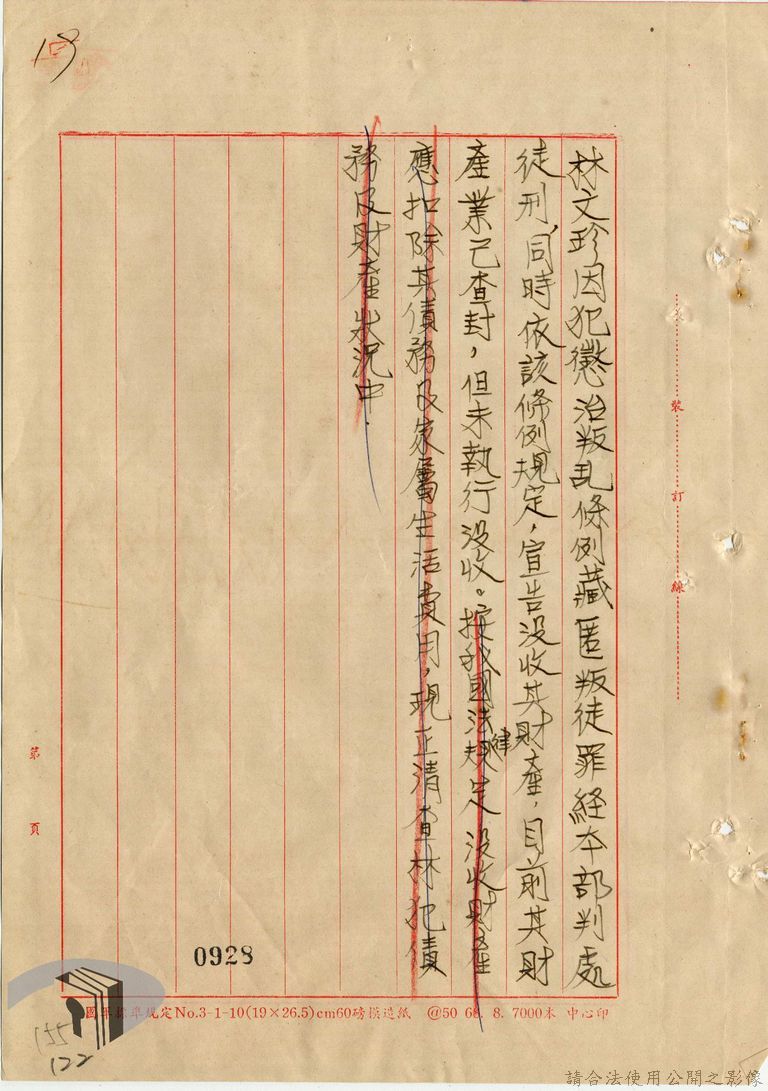 19
林文珍因犯懲治叛乱條例藏匿叛徒罪経本部判處
徒刑，同時依該條例規定，宣告没收其財產，目前其財
產業已查封，但未執行没收。按我國法律規定没收財產
應扣除其債務及家屬生活費用，現正清查林犯債
務及財產狀況中．
裝訂線
第 頁
0928
規定No.3-1-10(19×26.5)cm60磅模造紙 @50 68. 8. 7000本 中心印
155
122
請合法使用公開之影像